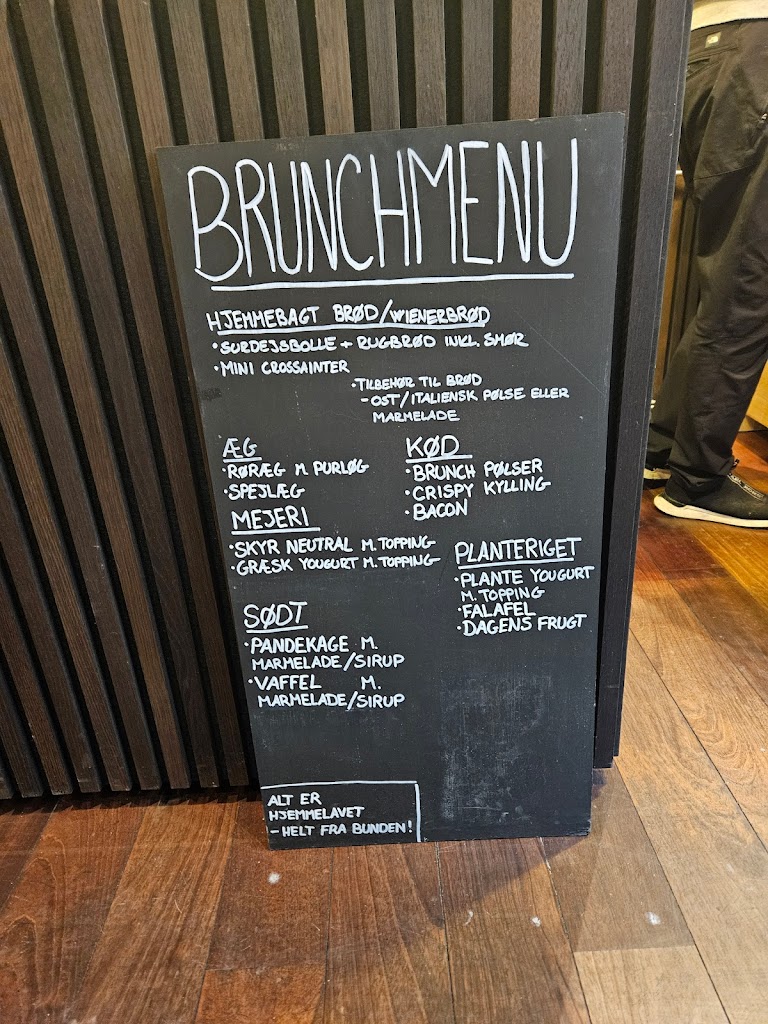 BRUNCHMENU
HJEMMEBAGT BRØD/WIENERBRØD
•SURDEJSBOLLE + RUGBRØD INKL. SMØR
•MINI CROSSAINTER
•TILBEHØR TIL BRØD
-OST/ITALIENSK PØLSE ELLER
MARMELADE
ÆG
•RØRÆG M. PURLØG
•SPEJLÆG
KØD
•BRUNCH PØLSER
•CRISPY KYLLING
•BACON
MEJERI
•SKYR NEUTRAL M. TOPPING
•GRÆSK YOUGURT M. TOPPING
PLANTERIGET
•PLANTE YOUGURT
M. TOPPING
•FALAFEL
•DAGENS FRUGT
SØDT
•PANDEKAGE M.
MARMELADE/SIRUP
•VAFFEL M.
MARMELADE/SIRUP
ALT ER
HJEMMELAVET
- HELT FRA BUNDEN!